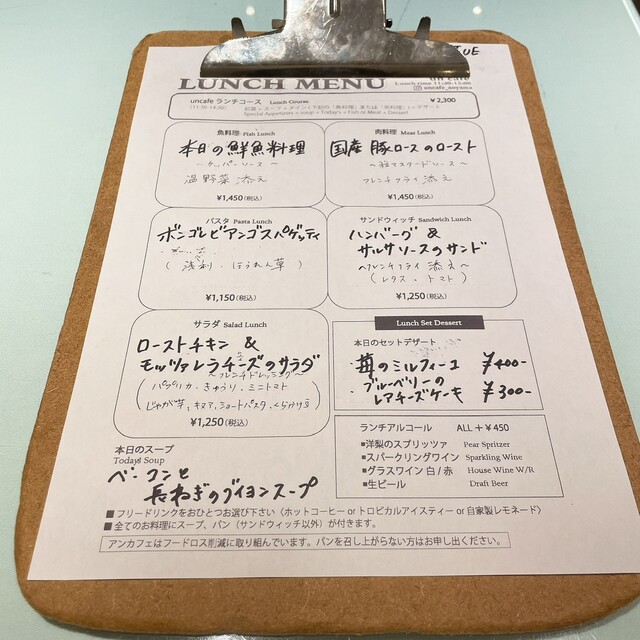 TUE
LUNCH MENU
un cafe
Lunch time 11:30-15:00
uncafe_aoyama
uncafe ランチコース Lunch Course ¥2,300
(11:30-14:00)
Special Appetizers + soup + Today's + Fish or Meat + Dessert
魚料理 Fish Lunch
本日の鮮魚料理
～ケッパーソース～
温野菜添え
¥1,450(税込)
肉料理 Meat Lunch
国産豚ロースのロースト
～粒マスタードソース～
フレンチフライ添え
¥1,450(税込)
パスタ Pasta Lunch
ボンゴレビアンゴスパゲッティ
(浅利・ほうれん草)
¥1,150(税込)
サンドウィッチ Sandwich Lunch
ハンバーグ &
サルサソースのサンド
～フレンチフライ添え～
(レタス・トマト)
¥1,250(税込)
サラダ Salad Lunch
ローストチキン &
モッツァレラチーズのサラダ
～フレンチドレッシング～
(パプリカ・きゅうり・ミニトマト
じゃが芋、キヌア、ショートパスタ、くらかけ豆)
¥1,250(税込)
Lunch Set Dessert
本日のセットデザート
苺のミルフィーユ ¥400-
ブルーベリーの
レアチーズケーキ ¥300-
ランチアルコール ALL+¥450
■洋梨のスプリッツァ Pear Spritzer
■スパークリングワイン Sparkling Wine
■グラスワイン 白/赤 House Wine W/R
■生ビール Draft Beer
本日のスープ
Todays Soup
ベーコンと
長ねぎのブイヨンスープ
■ フリードリンクをおひとつお選び下さい〈ホットコーヒー or トロピカルアイスティー or 自家製レモネード〉
■ 全てのお料理にスープ、パン（サンドウィッチ以外）が付きます。
アンカフェはフードロス削減に取り組んでいます。パンを召し上がらない方はお申し出ください。